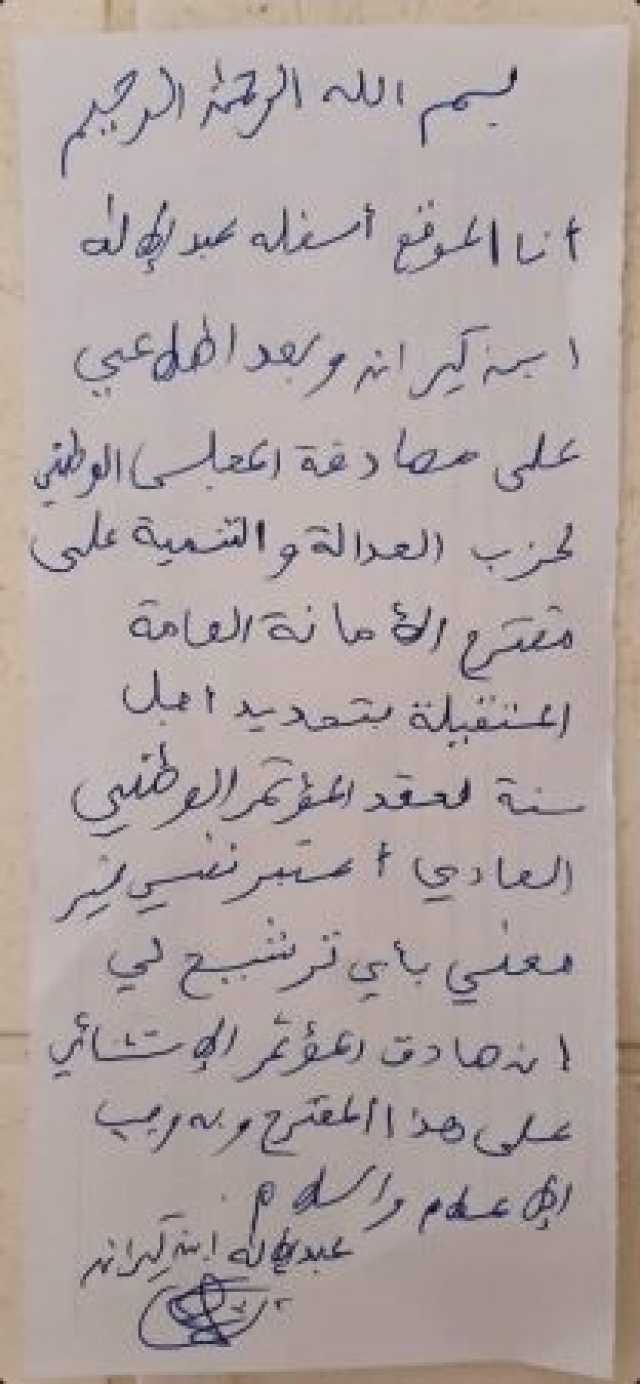 بسم الله الرحمن الرحيم
أنا الموقع أسفله عبد الإلاه
ابن كيران وبعد اطلاعي
على مصادقة المجلس الوطني
لحزب العدالة والتنمية على
مقترح الأمانة العامة
المستقيلة بتحديد اجل
سنة لعقد المؤتمر الوطني
العادي أعتبر نفسي غير
معني بأي ترشيح لي
ان صادق المؤتمر الإستثنائي
على هذا المقترح وبه وجب
الإعلام والسلام.
عبد الإلاه ابن كيران